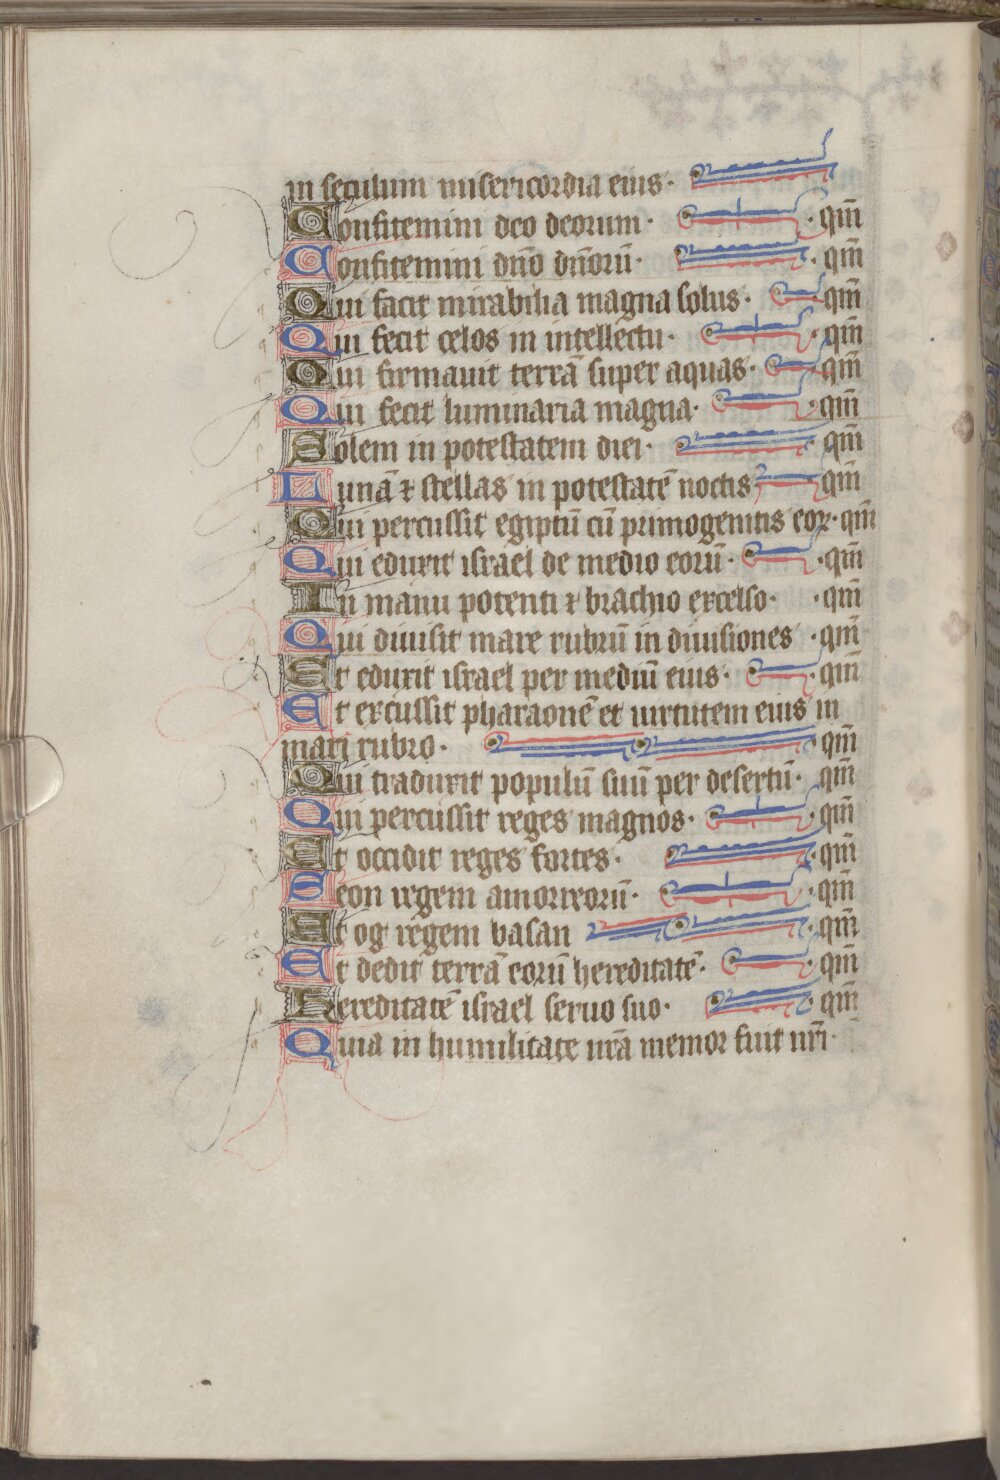 in seculum misericordia eius·
Confitemini deo deorum· ·qm̄
Confitemini dn̄o dn̄orū· ·qm̄
Qui facit mirabilia magna solus· ·qm̄
Qui fecit celos in intellectu· ·qm̄
Qui firmauit terrā super aquas· ·qm̄
Qui fecit luminaria magna· ·qm̄
Solem in potestatem diei· ·qm̄
Lunā ⁊ stellas in potestatē noctis qm̄
Qui percussit egiptū cū primogenitis eoꝝ·qm̄
Qui eduxit israel de medio eorū· ·qm̄
In manu potenti ⁊ brachio excelso· ·qm̄
Qui diuisit mare rubrū in diuisiones ·qm̄
Et eduxit israel per mediū eius· ·qm̄
Et excussit pharaonē et uirtutem eius in
mari rubro· ·qm̄
Qui traduxit populū suū per desertū· qm̄
Qui percussit reges magnos· ·qm̄
Et occidit reges fortes· ·qm̄
Seon regem amorreorū· ·qm̄
Et og regem basan ·qm̄
Et dedit terrā eorū hereditatē· ·qm̄
Hereditatē israel seruo suo· ·qm̄
Quia in humilitate nrā memor fuit nrī·